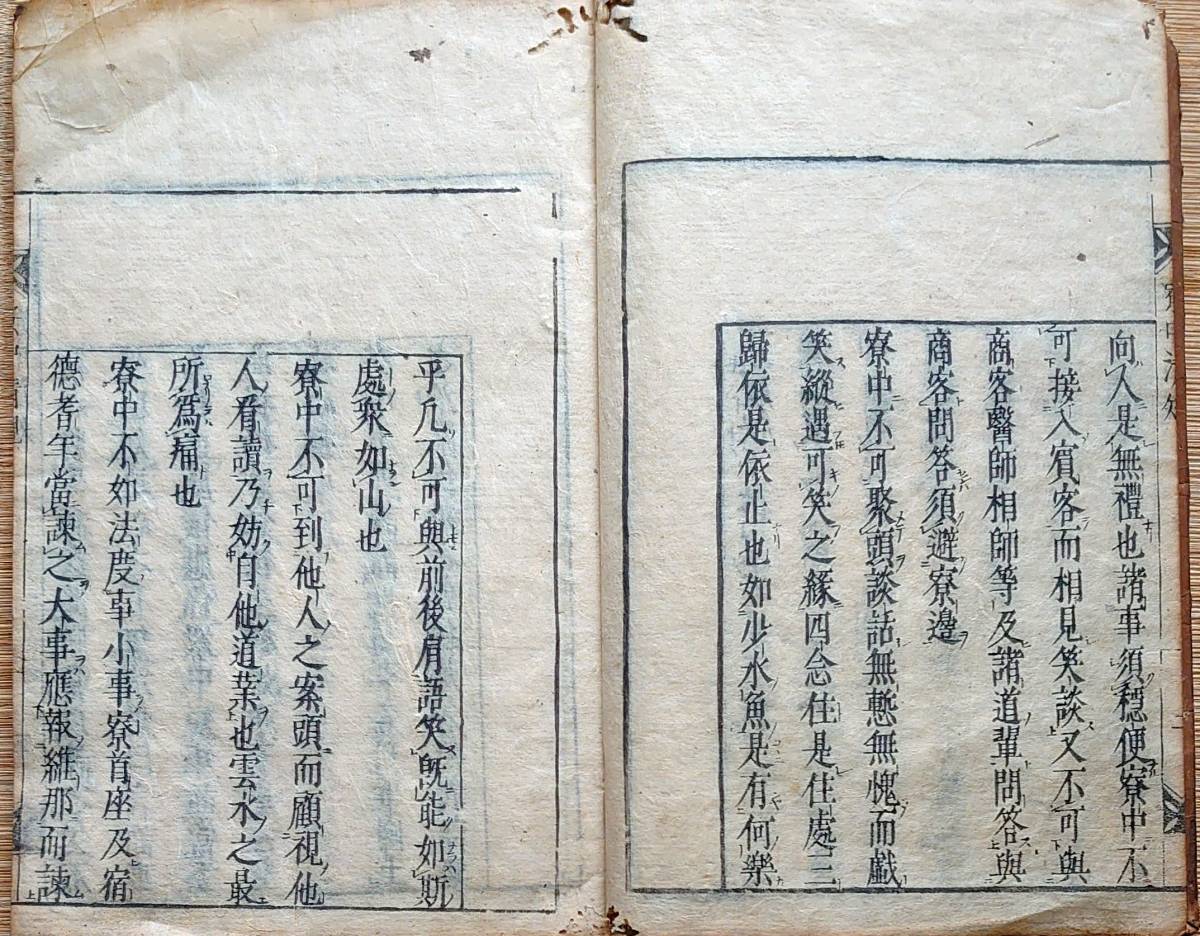 向人是無禮也諸事須穩便寮中不
可接入賓客而相見笑談又不可與
商客醫師相師等及諸道輩問答與
商客問答須避寮邊
寮中不可聚頭談話無慙無愧而戲
笑縱遇可笑之緣四念住是住處三
歸依是依止也如少水魚是有何樂
乎凡不可與前後肩語笑既能如斯
處衆如山也
寮中不可到他人之案頭而顧視他
人看讀乃妨自他道業也雲水之最
所爲痛也
寮中不如法度事小事寮首座及宿
德耆年當諫之大事應報維那而諫